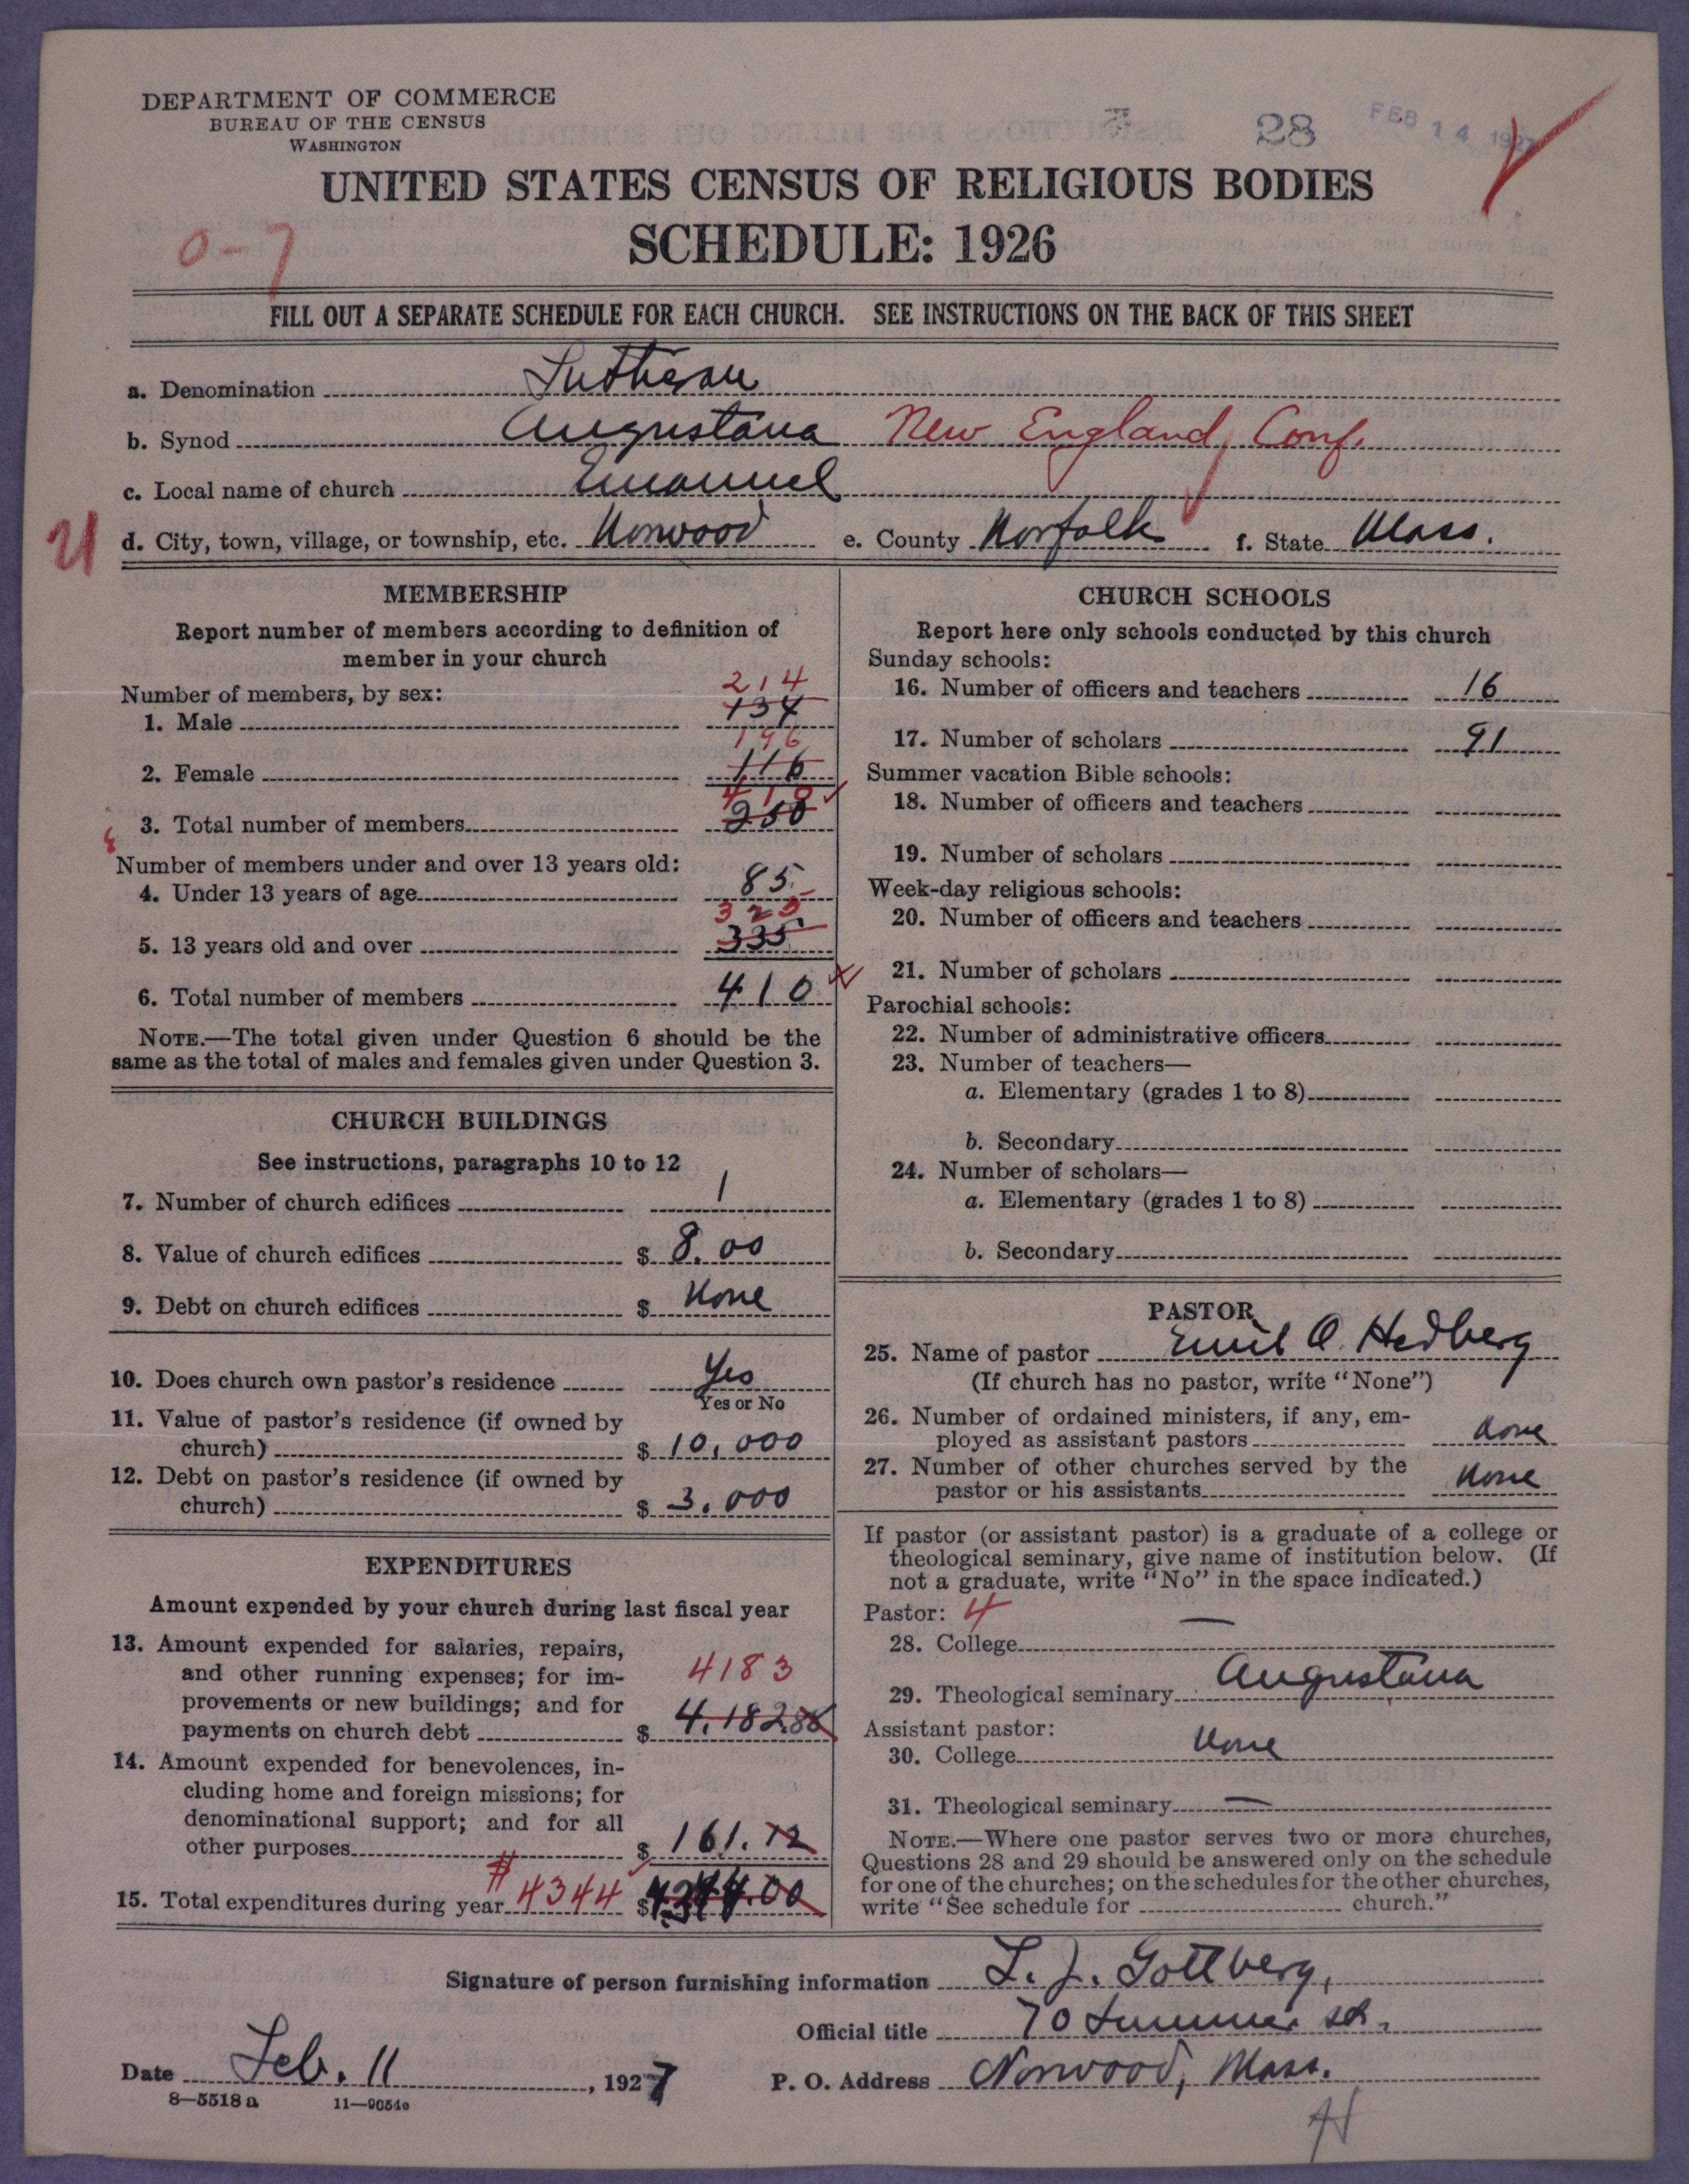 DEPARTMENT OF COMMERCE
BUREAU OF THE CENSUS
WASHINGTON
28
FEB 14 1927
UNITED STATES CENSUS OF RELIGIOUS BODIES
SCHEDULE: 1926
0-7
FILL OUT A SEPARATE SCHEDULE FOR EACH CHURCH. SEE INSTRUCTIONS ON THE BACK OF THIS SHEET
a. Denomination Lutheran
b. Synod Augustana New England Conf.
c. Local name of church Emanuel
U d. City, town, village, or township, etc. Norwood e. County Norfolk f. State Mass.
MEMBERSHIP
Report number of members according to definition of
member in your church
Number of members, by sex:
214
1. Male 134
196
2. Female 116
410
3. Total number of members 250
Number of members under and over 13 years old:
4. Under 13 years of age 85
325
5. 13 years old and over 335
6. Total number of members 410
NOTE.—The total given under Question 6 should be the
same as the total of males and females given under Question 3.
CHURCH BUILDINGS
See instructions, paragraphs 10 to 12
7. Number of church edifices 1
8. Value of church edifices $ 8.00
9. Debt on church edifices $ None
10. Does church own pastor's residence Yes
Yes or No
11. Value of pastor's residence (if owned by
church) $ 10,000
12. Debt on pastor's residence (if owned by
church) $ 3.000
EXPENDITURES
Amount expended by your church during last fiscal year
13. Amount expended for salaries, repairs,
and other running expenses; for im-
4183
provements or new buildings; and for
payments on church debt $ 4.182.88
14. Amount expended for benevolences, in-
cluding home and foreign missions; for
denominational support; and for all
other purposes $ 161.12
15. Total expenditures during year $4344 $ 4344.00
CHURCH SCHOOLS
Report here only schools conducted by this church
Sunday schools:
16. Number of officers and teachers 16
17. Number of scholars 91
Summer vacation Bible schools:
18. Number of officers and teachers
19. Number of scholars
Week-day religious schools:
20. Number of officers and teachers
21. Number of scholars
Parochial schools:
22. Number of administrative officers
23. Number of teachers—
a. Elementary (grades 1 to 8)
b. Secondary
24. Number of scholars—
a. Elementary (grades 1 to 8)
b. Secondary
PASTOR
25. Name of pastor Emil O. Hedberg
(If church has no pastor, write "None")
26. Number of ordained ministers, if any, em-
ployed as assistant pastors None
27. Number of other churches served by the
pastor or his assistants None
If pastor (or assistant pastor) is a graduate of a college or
theological seminary, give name of institution below. (If
not a graduate, write "No" in the space indicated.)
Pastor: 4
28. College —
29. Theological seminary Augustana
Assistant pastor:
30. College None
31. Theological seminary —
NOTE.—Where one pastor serves two or more churches,
Questions 28 and 29 should be answered only on the schedule
for one of the churches; on the schedules for the other churches,
write "See schedule for church."
Signature of person furnishing information L. J. Gottberg,
Official title 70 Summer st.
Date Feb. 11, 1927 P. O. Address Norwood, Mass.
8—5518 a 11—9054c